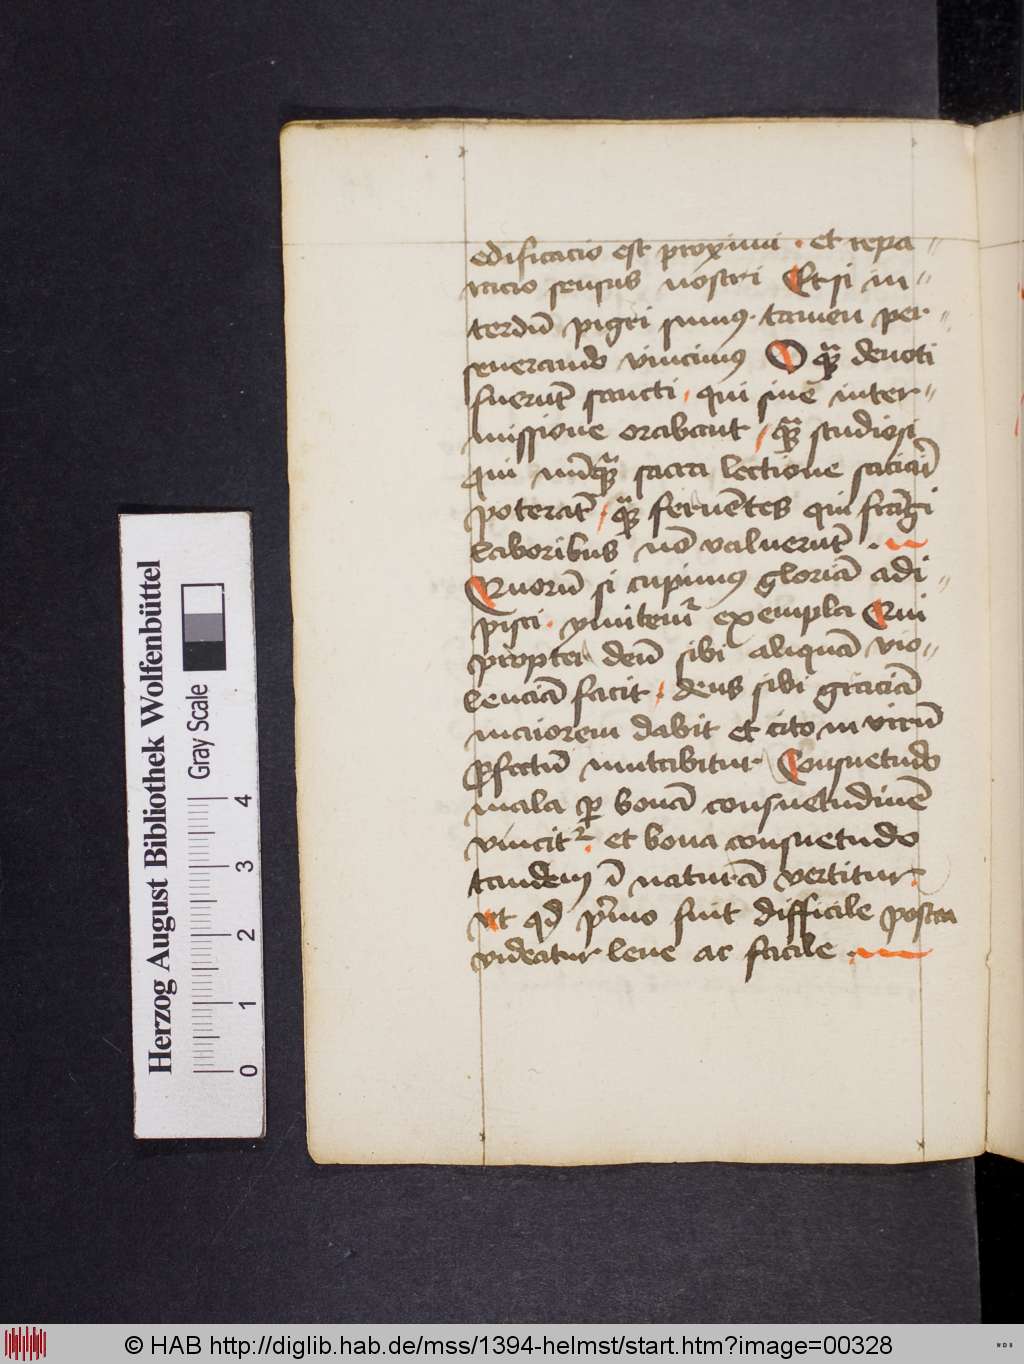 edificacio est proximi · et repa-
racio sensus nostri Et si in-
terdū pigri sumꝰ · tamen per-
seuerando vincimus O qͣ deuoti
fuerūt sancti / qui sine inter-
missione orabant / qͣ studiosi
qui nūqͣ sacra lectione saciari
poterāt / qͣ feruētes qui frāgi
laboribus nō valuerūt .
Quorū si cupimꝰ gloriā adi-
pisci · ymitemͬ exempla Qui
propter deū sibi aliquā vio-
lenciā facit / deus sibi graciā
maiorem dabit et cito in virū
ꝑfectū mutabitur Consuetudo
mala ꝑ bonā consuetudinē
vincitͬ . et bona consuetudo
tandem ī naturā vertitur .
Ut qd pͥmo fuit difficile postea
videatur leue ac facile .
Herzog August Bibliothek Wolfenbüttel
Gray Scale
0 1 2 3 4
© HAB http://diglib.hab.de/mss/1394-helmst/start.htm?image=00328